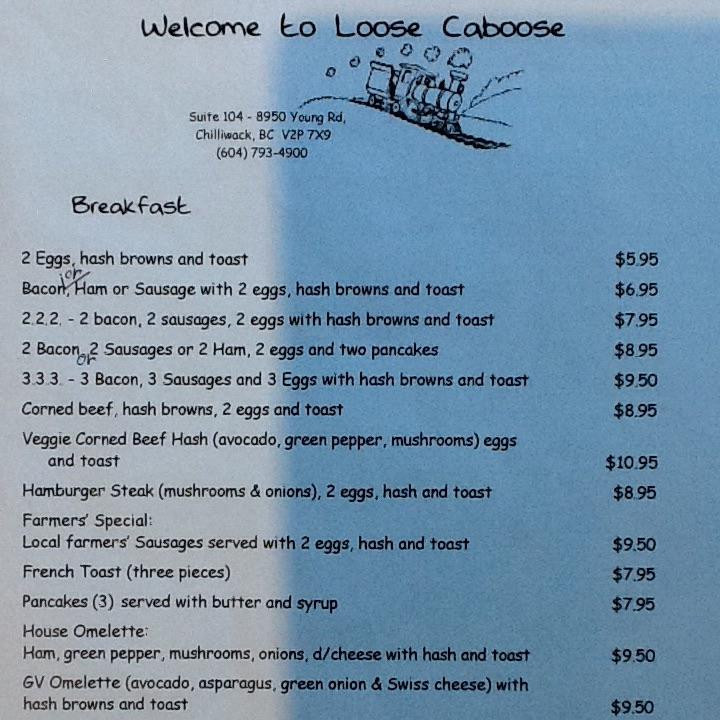 Welcome to Loose Caboose
Suite 104 - 8950 Young Rd,
Chilliwack, BC V2P 7X9
(604) 793-4900
Breakfast
2 Eggs, hash browns and toast $5.95
or
Bacon, Ham or Sausage with 2 eggs, hash browns and toast $6.95
2.2.2. - 2 bacon, 2 sausages, 2 eggs with hash browns and toast $7.95
2 Bacon, 2 Sausages or 2 Ham, 2 eggs and two pancakes $8.95
or
3.3.3. - 3 Bacon, 3 Sausages and 3 Eggs with hash browns and toast $9.50
Corned beef, hash browns, 2 eggs and toast $8.95
Veggie Corned Beef Hash (avocado, green pepper, mushrooms) eggs
and toast $10.95
Hamburger Steak (mushrooms & onions), 2 eggs, hash and toast $8.95
Farmers' Special:
Local farmers' Sausages served with 2 eggs, hash and toast $9.50
French Toast (three pieces) $7.95
Pancakes (3) served with butter and syrup $7.95
House Omelette:
Ham, green pepper, mushrooms, onions, d/cheese with hash and toast $9.50
GV Omelette (avocado, asparagus, green onion & Swiss cheese) with
hash browns and toast $9.50